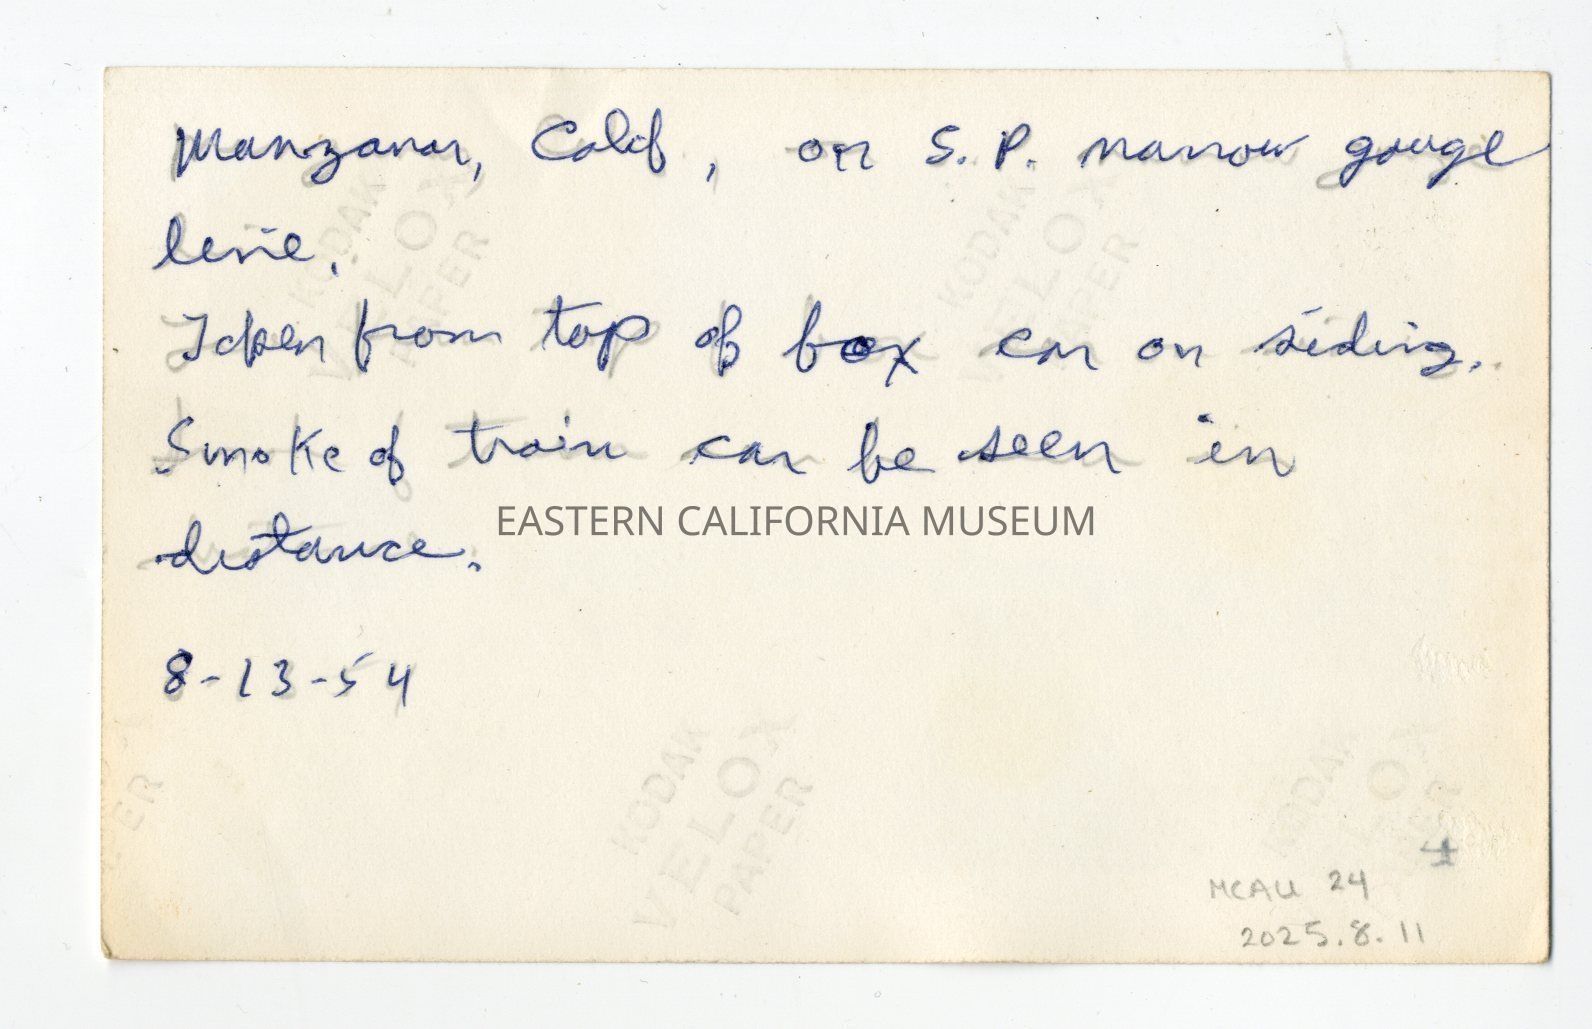 Manzanar, Calif, on S. P. narrow gauge
line.
Taken from top of box car on siding.
Smoke of train can be seen in
distance.
EASTERN CALIFORNIA MUSEUM
8-13-54
KODAK
VELOX
PAPER
KODAK
VELOX
PAPER
KODAK
VELOX
PAPER
KODAK
VELOX
PAPER
4
MCAU 24
2025.8.11